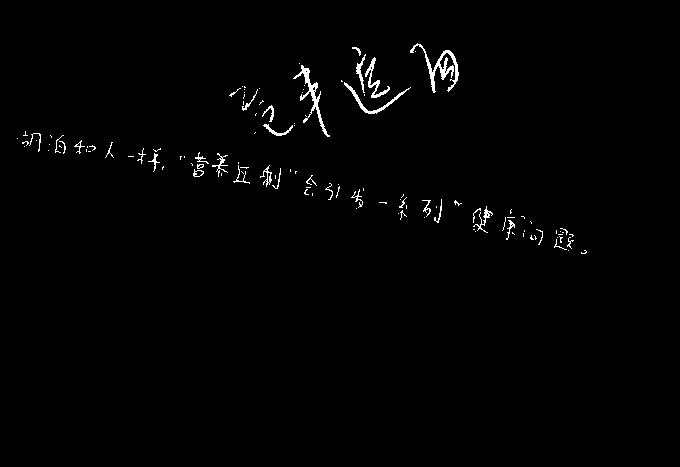 湖泊和人一样，“营养过剩”会引发一系列“健康问题。